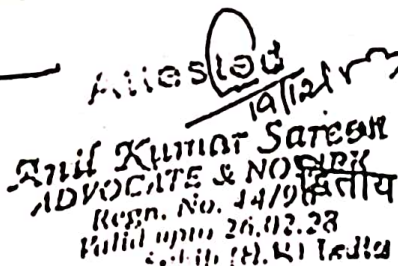 Attested
19/12/
Anil Kumar Saresh
ADVOCATE & NOTARY
द्वितीय
Regn. No. 44/9
Valid upto 26.02.28
(H.P.) India